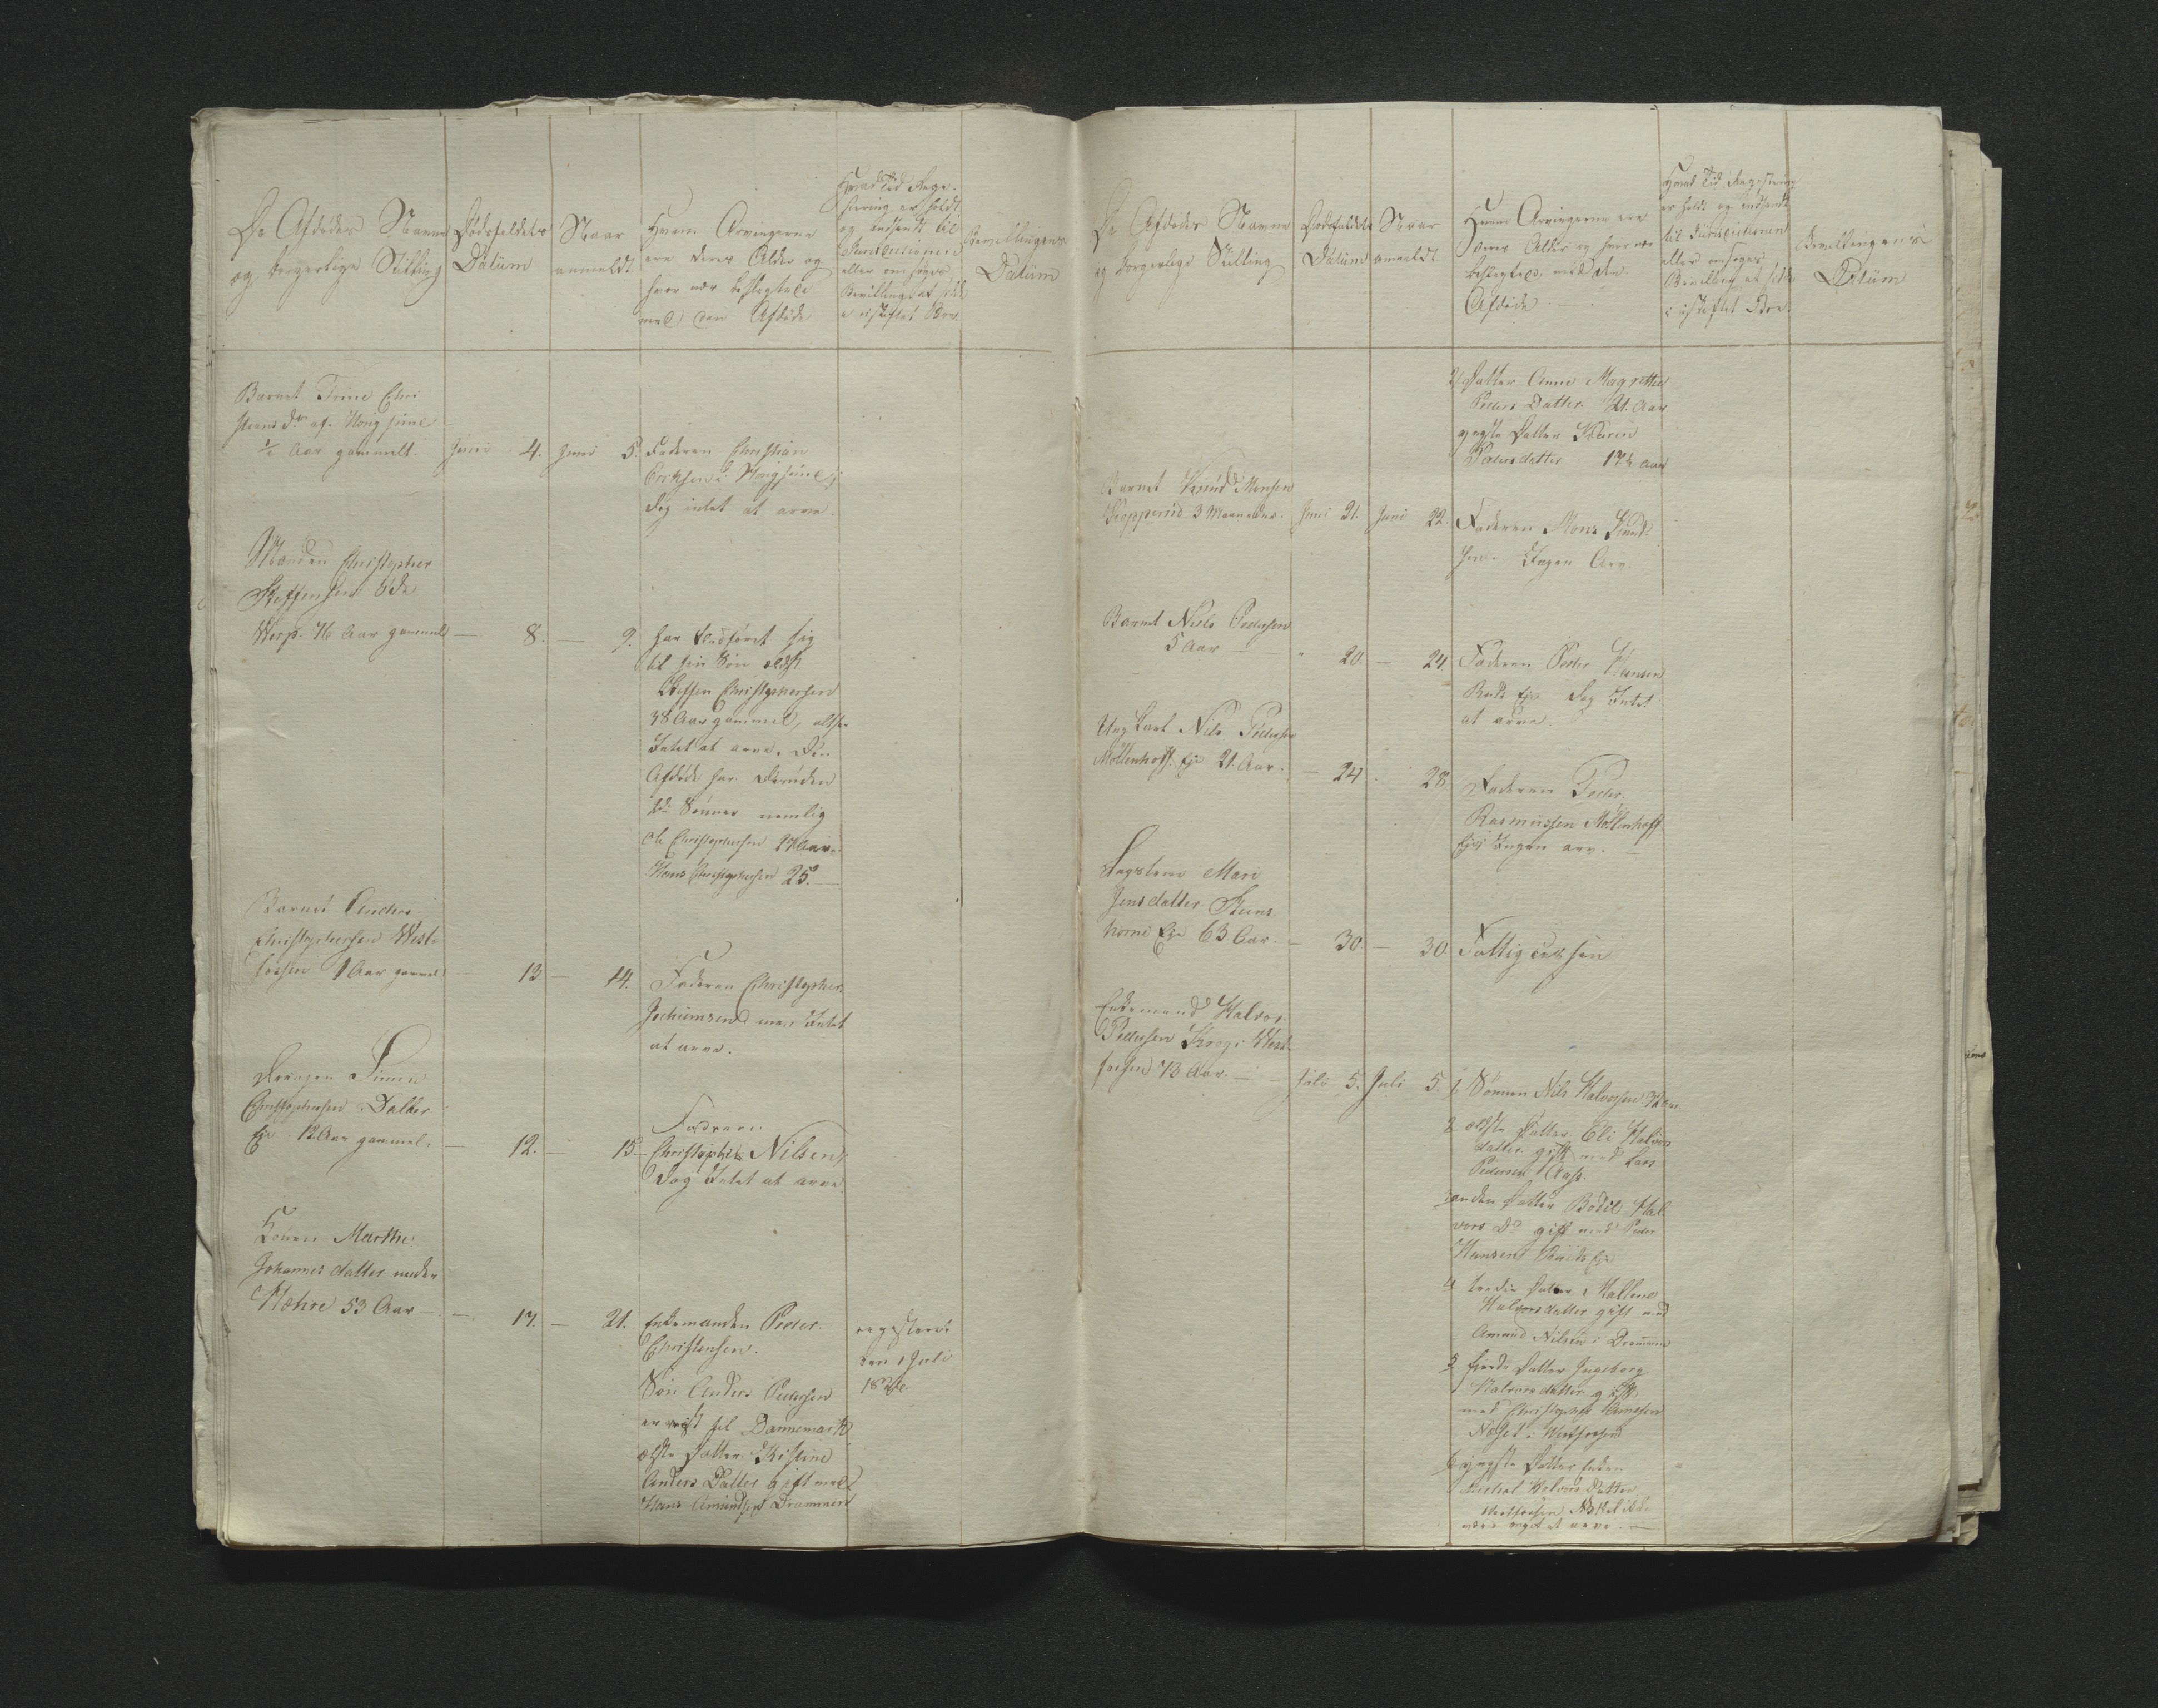 De Afdødes Navne
og borgerlige Stilling
Dødsfaldets
Datum
Naar
anmeldt.
Hvem Arvingerne
ere deres Alder og
hvor nær beslegtede
med den Afdøde
Hvad Tid Regi-
stering er holdt
og indsendt til
Jurisdictionen
eller om søges
Bevilling at sidde
i uskiftet Boe
Bevillingens
Datum
Barnet Trine Chri
stians Dr af
½ Aar gammelt. Juni 4. Juni 5. Faderen Christian
Eriksen
dog intet at arve.
Manden Christopher
Steffensen
76 Aar gammel — 8. — 9. har sig
til sin Søn ældste
Steffen Christophersen
38 Aar gammel, altsaa
Intet at arve. Den
Afdøde har desuden
Sønner nemlig
Ole Christophersen 27 Aar
Hans Christophersen 25. —
Barnet Anders
Christophersen West-
fossen 1 Aar gammel — 13 — 14. Faderen Christopher
Jochumsen men Intet
at arve.
Simen
Christophersen Dalter
Eje 12 Aar gammel. — 12. — 15. Faderen
Christopher Nilsen;
dog Intet at arve
Konen Marthe
Johannesdatter
Mæhre 53 Aar — — 17. — 21. Enkemanden Peder
Christensen.
Søn Anders Pedersen
er reist til Dannemark
ældste Datter Kristine
Anders Datter gift med
Hans Amundsen Drammen
registeret
den 1 Juli
De Afdødes Navne
og borgerlige Stilling
Dødsfaldets
Datum
Naar
anmeldt
Hvem Arvingerne ere
deres Alder og hvor nær
beslegtede med den
Afdøde
Hvad Tid Registering
er holdt og indsendt
til Jurisdictionen
eller om søges
Bevilling at sidde
i uskiftet Boe.
Bevillingens
Datum
2/ Datter Anne Magrethe
Peders Datter 21. Aar
yngste Datter Karen
Pedersdatter 17½ Aar
Barnet Knud Monsen
3 Maaneder. Juni 21. Juni 22. Faderen Mons Knud-
sen. Ingen Arv.
Barnet Niels Pedersen
5 Aar — " 20 — 24. Faderen Peder Hansen
Eje dog Intet
at arve.
Ung Karl Nils Pedersen
Möllenhoff Eje 21. Aar. — 24. 28 Faderen Peder
Rasmussen Möllenhoff
Eje Ingen arv.
Mari
Jensdatter Steens
horni Eje 63 Aar. — 30. — 30 Fattig
Enkemand Halvor
Pedersen Krog i West-
fossen 73 Aar. — Juli 5. Juli 5. 1. Sønnen Nils Halvorsen
2 ældste Datter Eli Halvors
datter gift med Lars
Pedersen Aas.
3 anden Datter Bodil Hal-
vors Dr gift med Peder
Hansen Eje
4 tredie Datter
Halvorsdatter gift med
Amund Nilsen i Drammen
5 fierde Datter Ingeborg
Halvorsdatter gift
med Christopher Arnesen
Næset i Westfossen
6 yngste Datter Enken
Halvors Datter
Westfossen. Skal ikke
være noget at arve. —